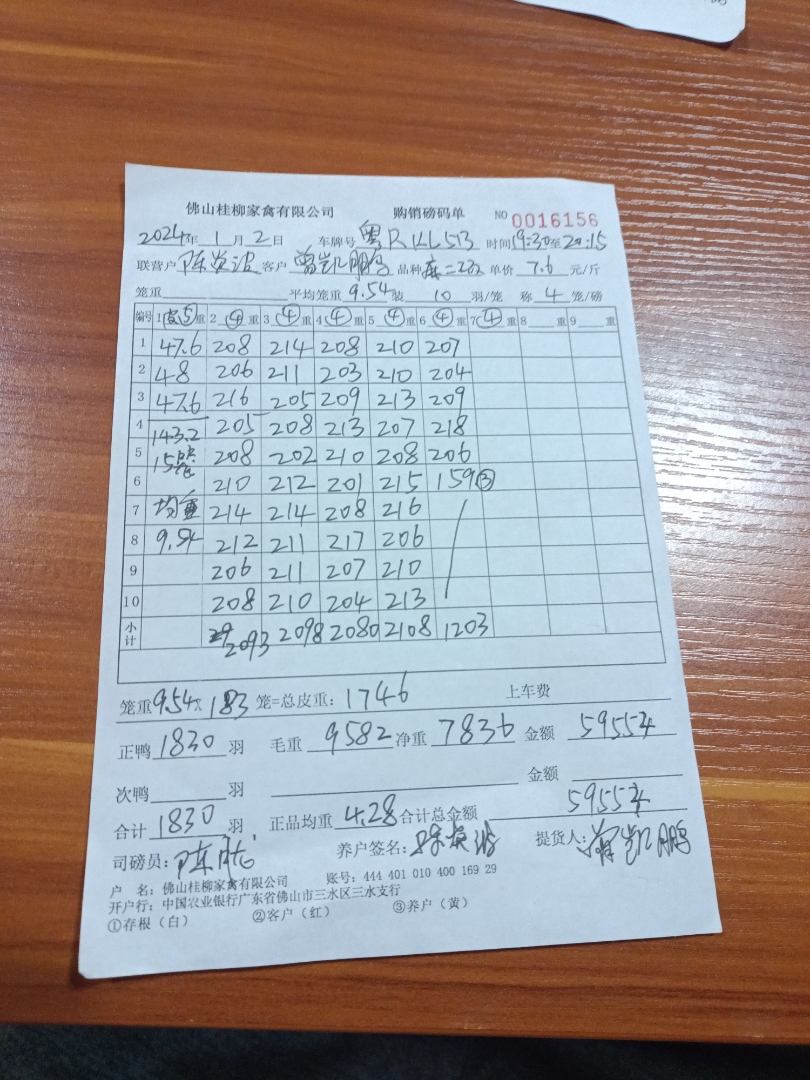 佛山桂柳家禽有限公司 购销磅码单 NO 0016156
2024年 1 月 2 日 车牌号 粤RKL513 时间19:30至20:15
联营户 客户 曾凯鹏 品种 单价 7.6 元/斤
笼重 平均笼重 9.54 装 10 羽/笼 称 4 笼/磅
编号 1皮⑤重 2 ④ 重 3 ④ 重 4 ④ 重 5 ④ 重 6 ④ 重 7 ④ 重 8 重 9 重
1 47.6 208 214 208 210 207
2 48 206 211 203 210 204
3 47.6 216 205 209 213 209
4 143.2 205 208 213 207 218
5 15笼 208 202 210 208 206
6 210 212 201 215 159③
7 均重 214 214 208 216
8 9.54 212 211 217 206
9 206 211 207 210
10 208 210 204 213
小计 2093 2098 2080 2108 1203
笼重9.54x 183 笼=总皮重：1746 上车费
正鸭 1830 羽 毛重 9582 净重 7836 金额 59554
次鸭 羽 金额
合计 1830 羽 正品均重 4.28 合计总金额 59554
司磅员： 养户签名： 提货人：曾凯鹏
户 名：佛山桂柳家禽有限公司 账号：444 401 010 400 169 29
开户行：中国农业银行广东省佛山市三水区三水支行
①存根（白） ②客户（红） ③养户（黄）